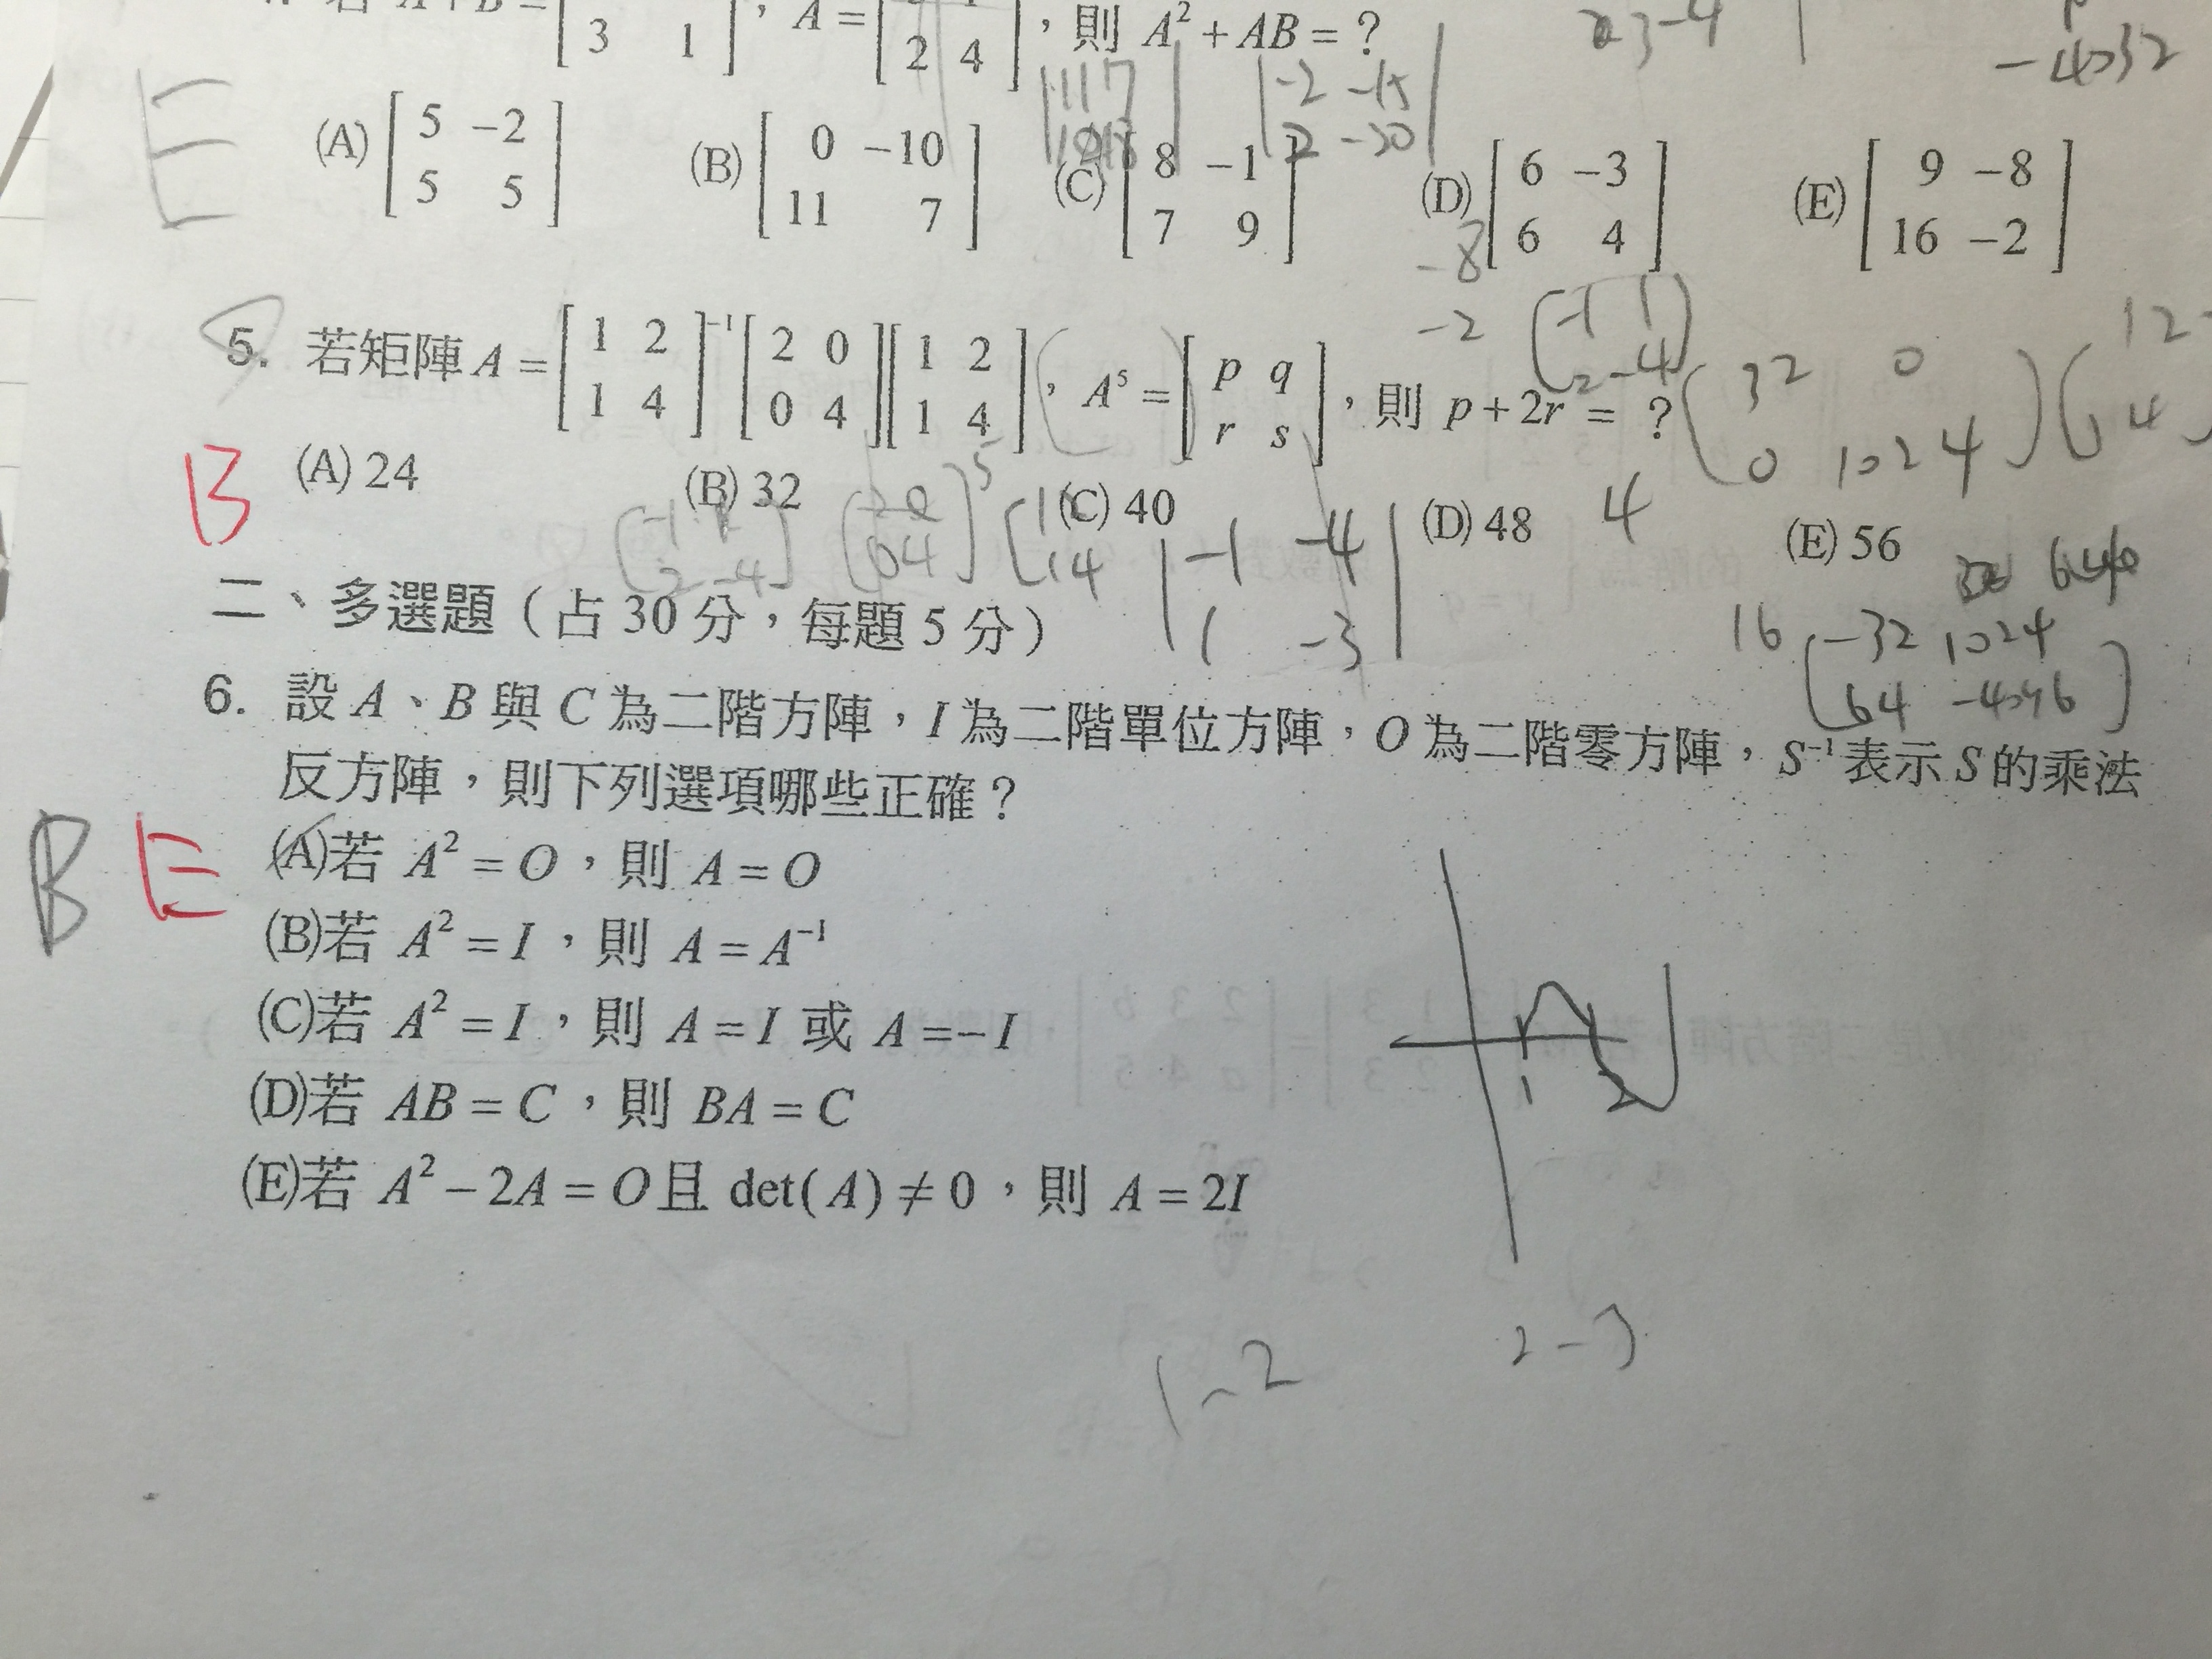 若 A+B = [ 3 1 ], A = [ 2 4 ],則 A² + AB = ?
E
(A) [ 5 −2 5 5 ] (B) [ 0 −10 11 7 ] (C) [ 8 −1 7 9 ] (D) [ 6 −3 6 4 ] (E) [ 9 −8 16 −2 ]
5. 若矩陣 A = [ 1 2 1 4 ]⁻¹ [ 2 0 0 4 ] [ 1 2 1 4 ], A⁵ = [ p q r s ],則 p + 2r = ?
B
(A) 24 (B) 32 (C) 40 (D) 48 (E) 56
二、多選題(占 30 分,每題 5 分)
6. 設 A、B 與 C 為二階方陣,I 為二階單位方陣,O 為二階零方陣,S⁻¹ 表示 S 的乘法
反方陣,則下列選項哪些正確?
B E
(A)若 A² = O,則 A = O
(B)若 A² = I,則 A = A⁻¹
(C)若 A² = I,則 A = I 或 A = −I
(D)若 AB = C,則 BA = C
(E)若 A² − 2A = O 且 det(A) ≠ 0,則 A = 2I
-8
-2
( -1 1 2 -4 )
( 32 0 0 1024 )
| -1 -4 1 -3 |
4
16
[ -32 1024 64 -4096 ]
1 2
1~2
2-3